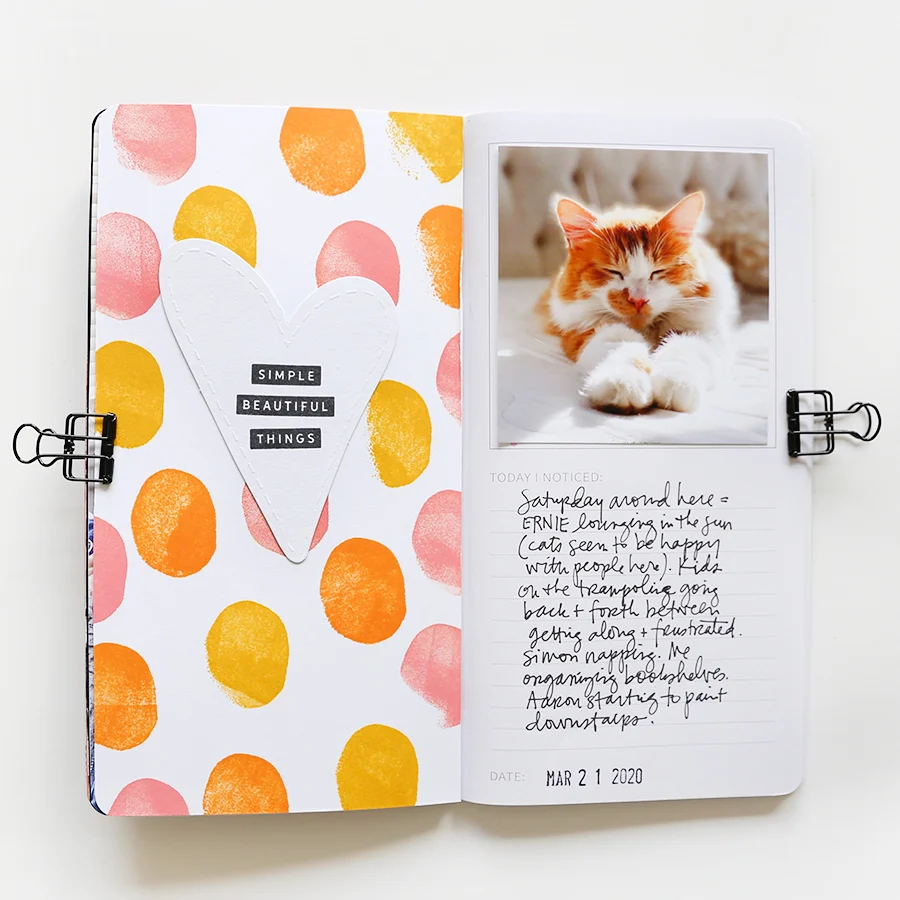 SIMPLE
BEAUTIFUL
THINGS
TODAY I NOTICED:
Saturday around here =
ERNIE lounging in the sun
(cats seem to be happy
with people here). Kids
on the trampoline going
back + forth between
getting along + frustrated.
Simon napping. Me
organizing bookshelves.
Aaron starting to paint
downstairs.
DATE: MAR 21 2020